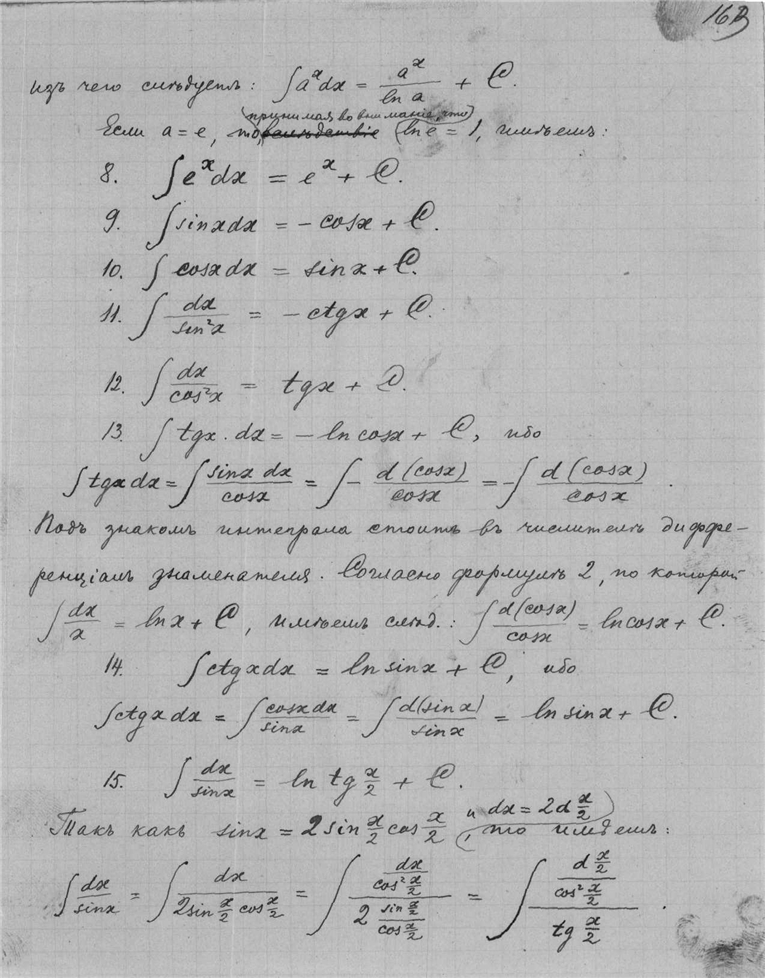 163
изъ чего слѣдуетъ: ∫aˣdx = aˣ/ln a + C.
(принимая во вниманіе, что)
Если a = e, то вслѣдствіе (ln e = 1, имѣемъ:
8. ∫eˣdx = eˣ + C.
9. ∫sinxdx = – cosx + C.
10. ∫cosxdx = sinx + C.
11. ∫dx/sin²x = – ctgx + C.
12. ∫dx/cos²x = tgx + C.
13. ∫tgx·dx = – ln cosx + C, ибо
∫tgxdx = ∫sinx dx/cosx = ∫– d(cosx)/cosx = –∫d(cosx)/cosx.
Подъ знакомъ интеграла стоитъ въ числителѣ диффе-
ренціалъ знаменателя. Согласно формулѣ 2, по которой
∫dx/x = lnx + C, имѣемъ слѣд.: ∫d(cosx)/cosx = lncosx + C.
14. ∫ctgxdx = ln sinx + C, ибо
∫ctgxdx = ∫cosxdx/sinx = ∫d(sinx)/sinx = ln sinx + C.
15. ∫dx/sinx = ln tg x/2 + C.
Такъ какъ sinx = 2sin x/2 cos x/2 и dx = 2d x/2, то имѣемъ:
∫dx/sinx = ∫dx/(2sin x/2 cos x/2) = ∫(dx/cos² x/2)/(2 (sin x/2)/(cos x/2)) = ∫(d x/2 / cos² x/2)/(tg x/2).